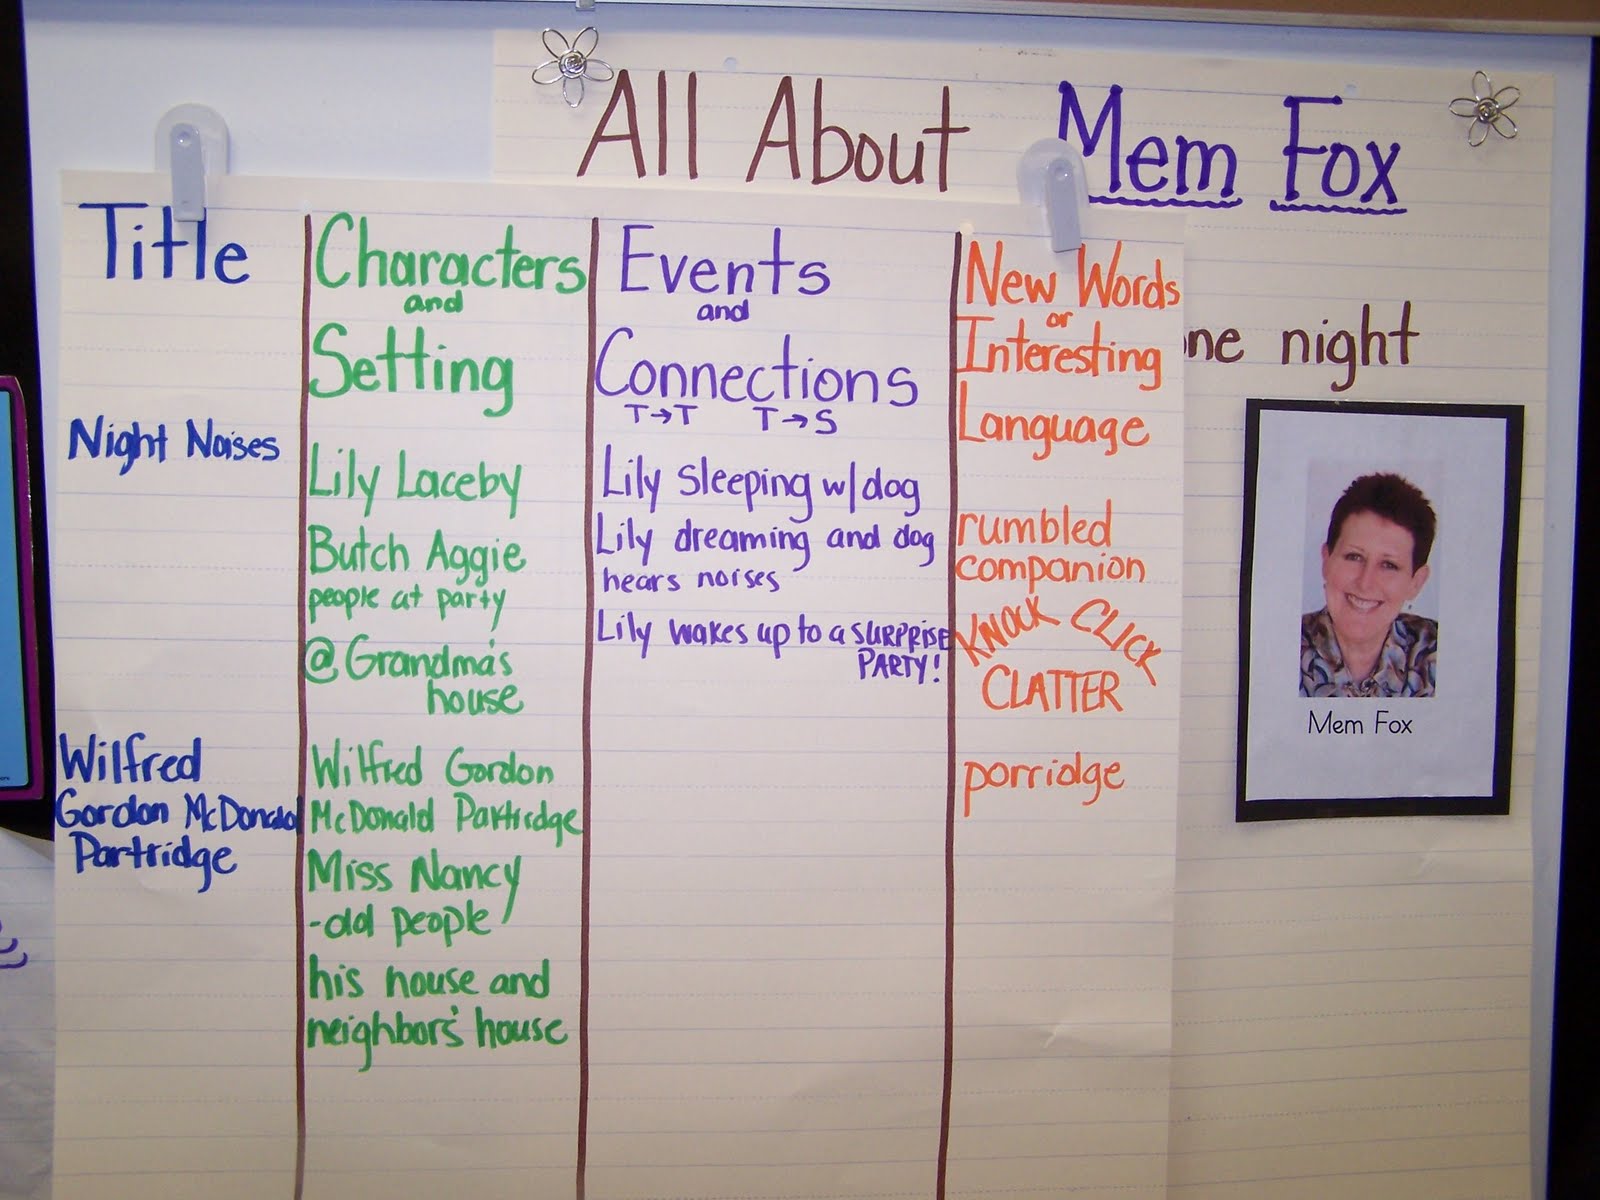 All About Mem Fox
ne night
Title
Night Noises
Wilfred
Gordon McDonald
Partridge
Characters
and
Setting
Lily Laceby
Butch Aggie
people at party
@ Grandma's
house
Wilfred Gordon
McDonald Partridge
Miss Nancy
-old people
his house and
neighbors' house
Events
and
Connections
T→T T→S
Lily sleeping w/dog
Lily dreaming and dog
hears noises
Lily wakes up to a SURPRISE
PARTY!
New Words
or
Interesting
Language
rumbled
companion
KNOCK CLICK
CLATTER
porridge
Mem Fox